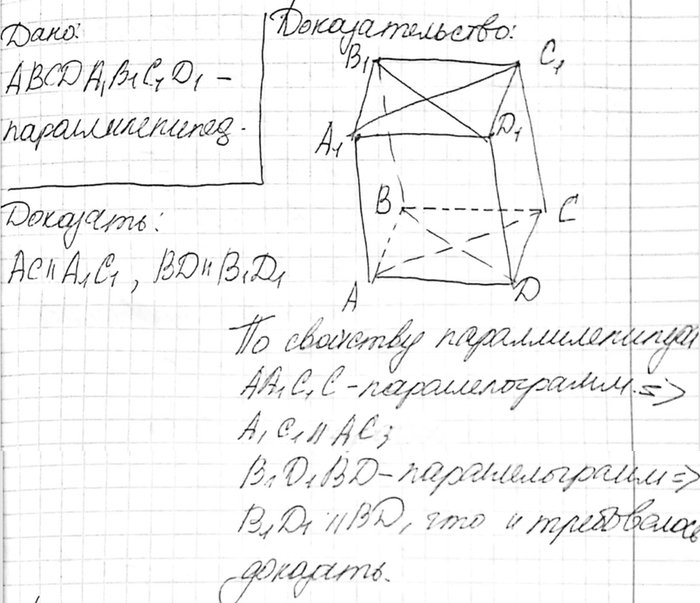 Дано:
ABCDA₁B₁C₁D₁ –
параллилепипед.
Доказать:
AC || A₁C₁, BD || B₁D₁
Доказательство:
B₁
C₁
A₁
D₁
B
C
A
D
По свойству параллилепипеда
AA₁C₁C – параллелограмм. =>
A₁C₁ || AC;
B₁D₁BD – параллелограмм =>
B₁D₁ || BD, что и требовалось
доказать.